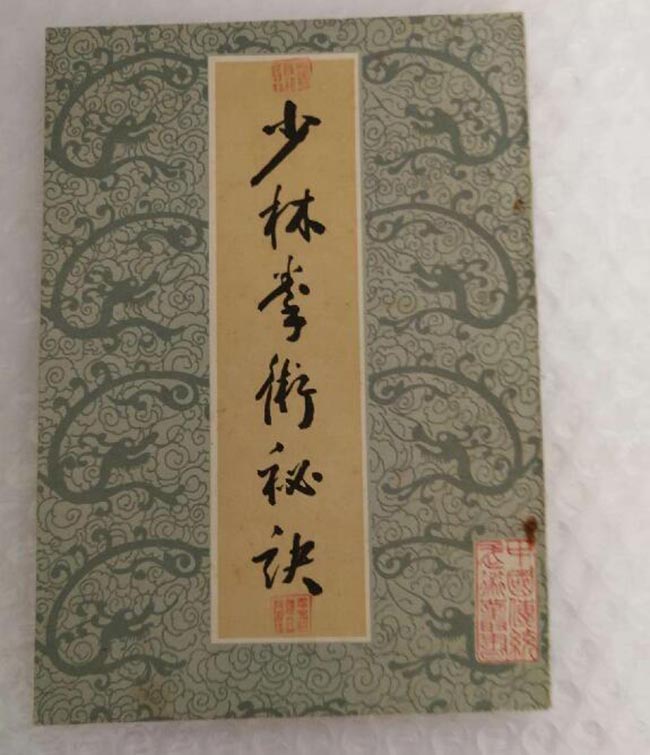 少林拳術秘訣
中國傳統
武術叢書